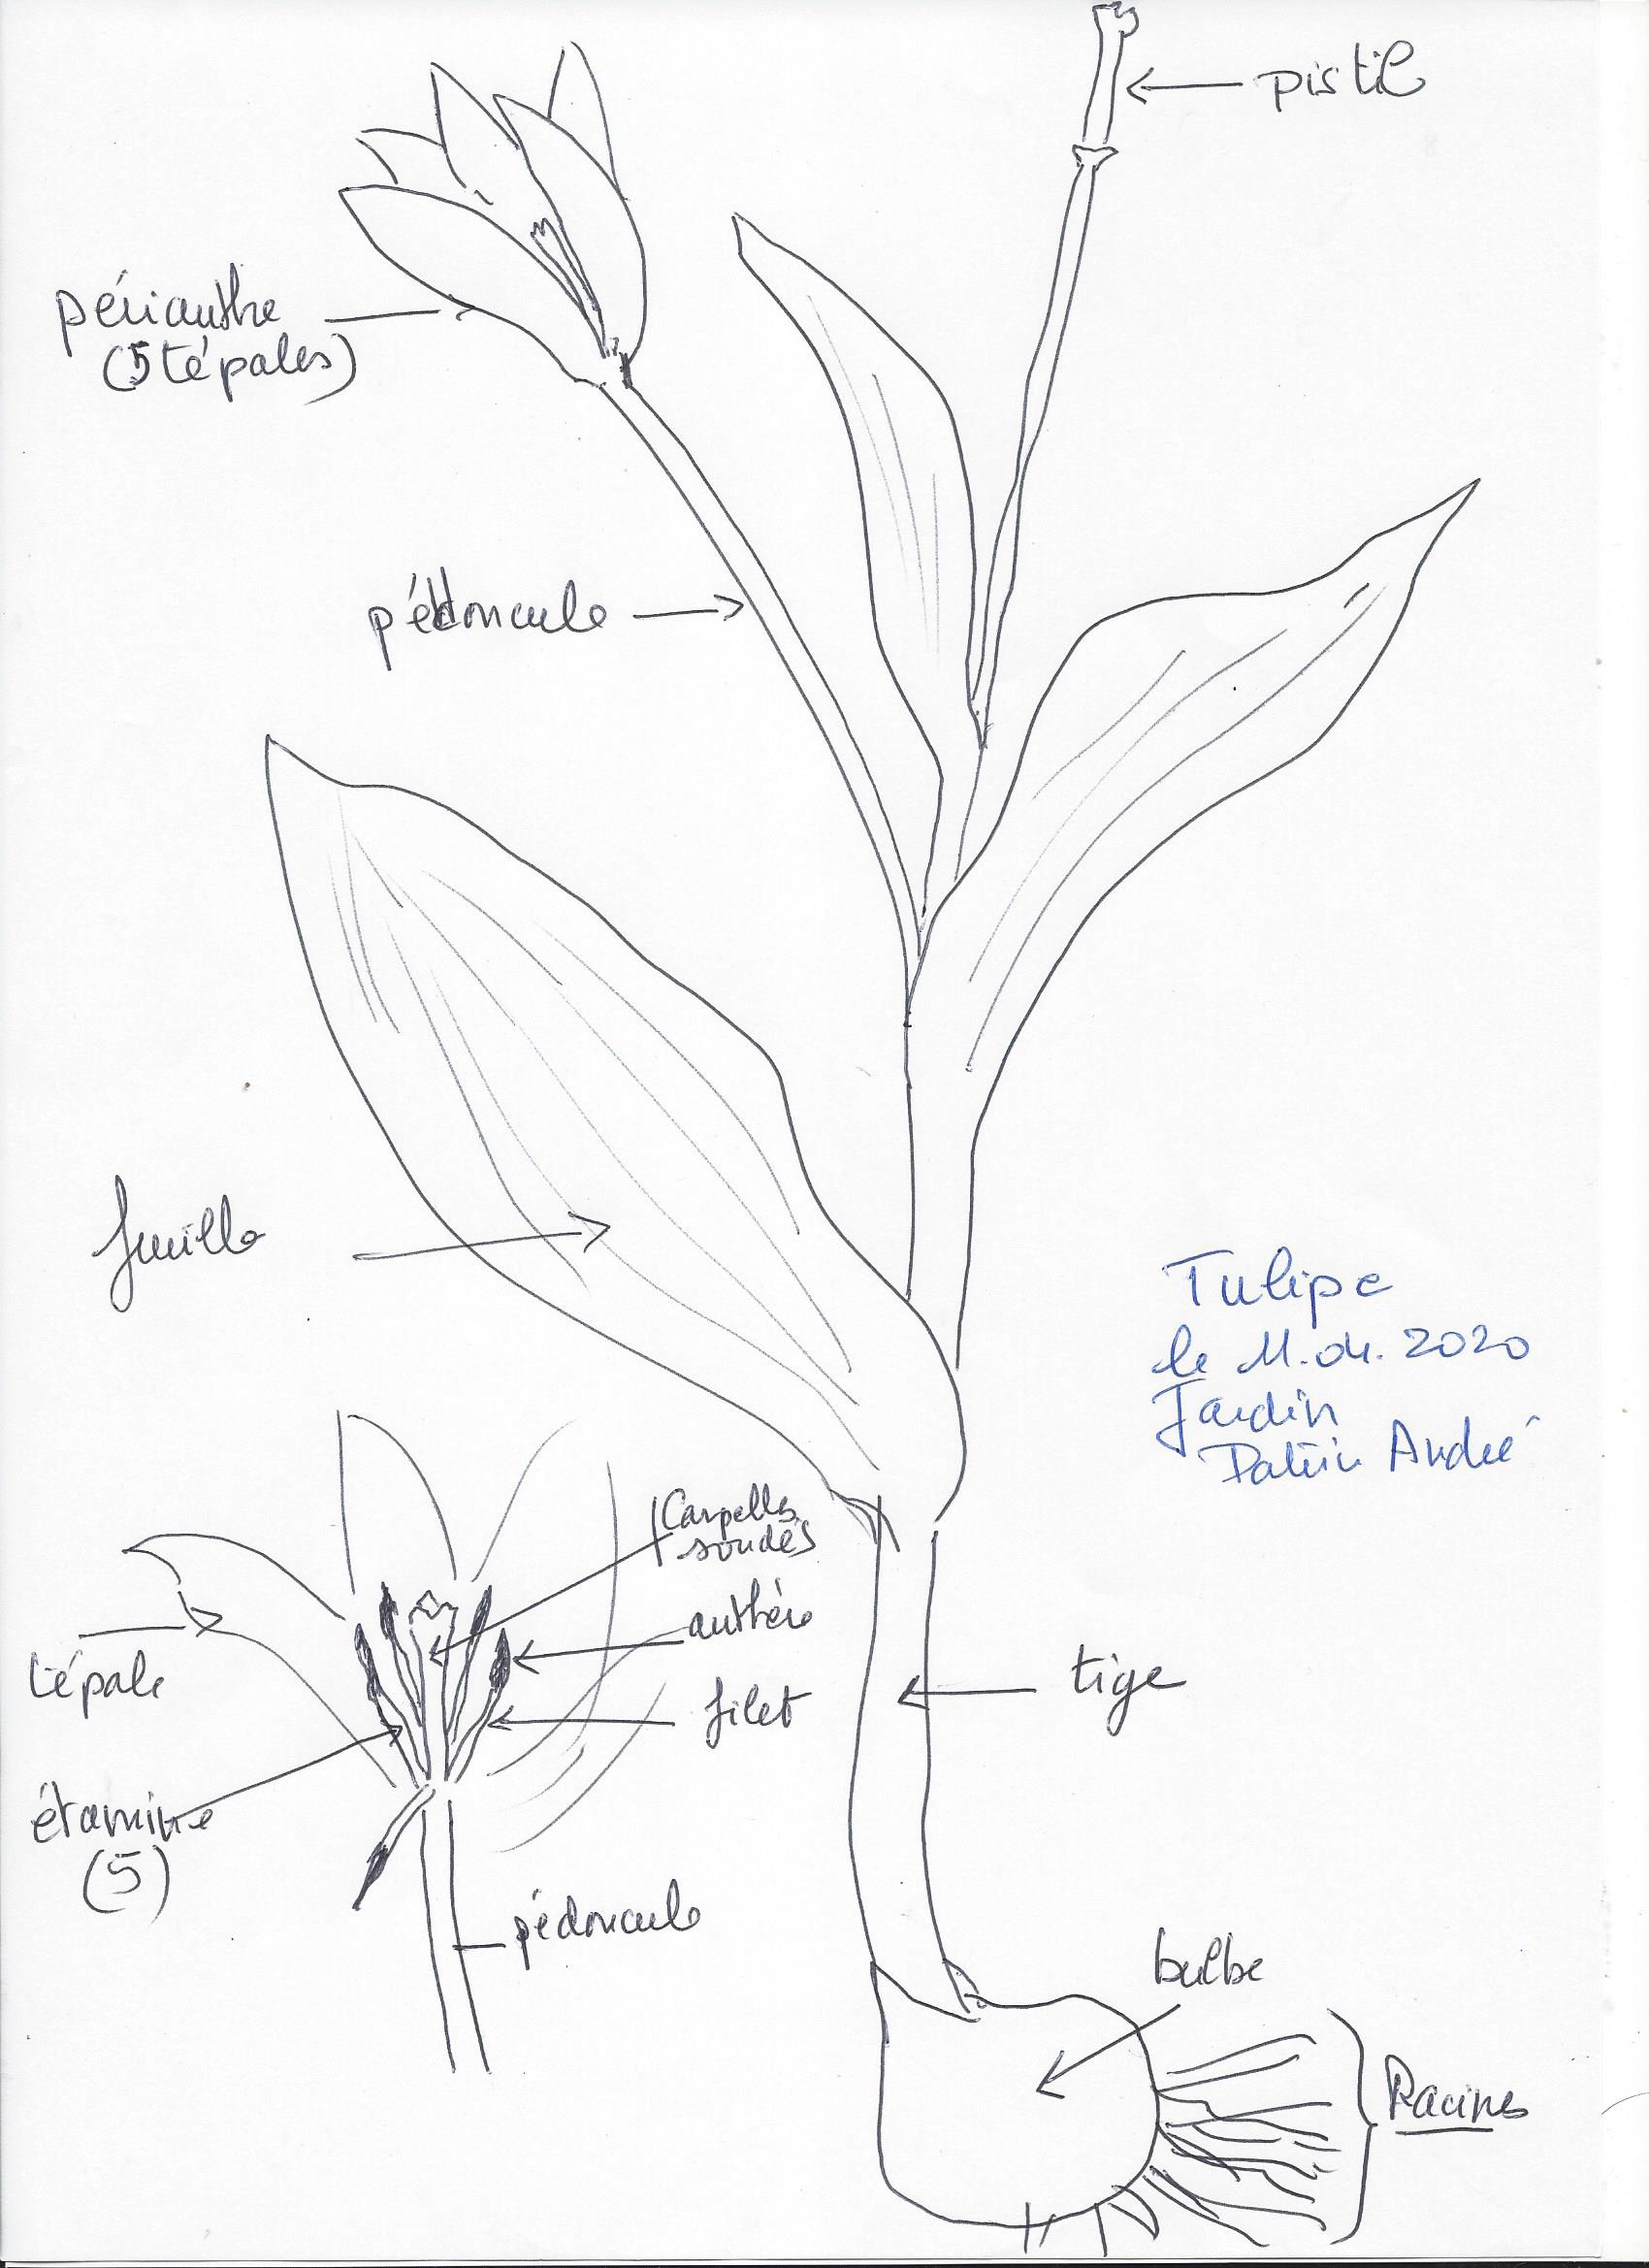 pistil
périanthe
(5 tépales)
pédoncule
feuille
Tulipe
le 11.04.2020
Jardin
Patrin André
Carpelles
soudés
anthère
tépale
filet
tige
étamine
(5)
pédoncule
bulbe
Racines